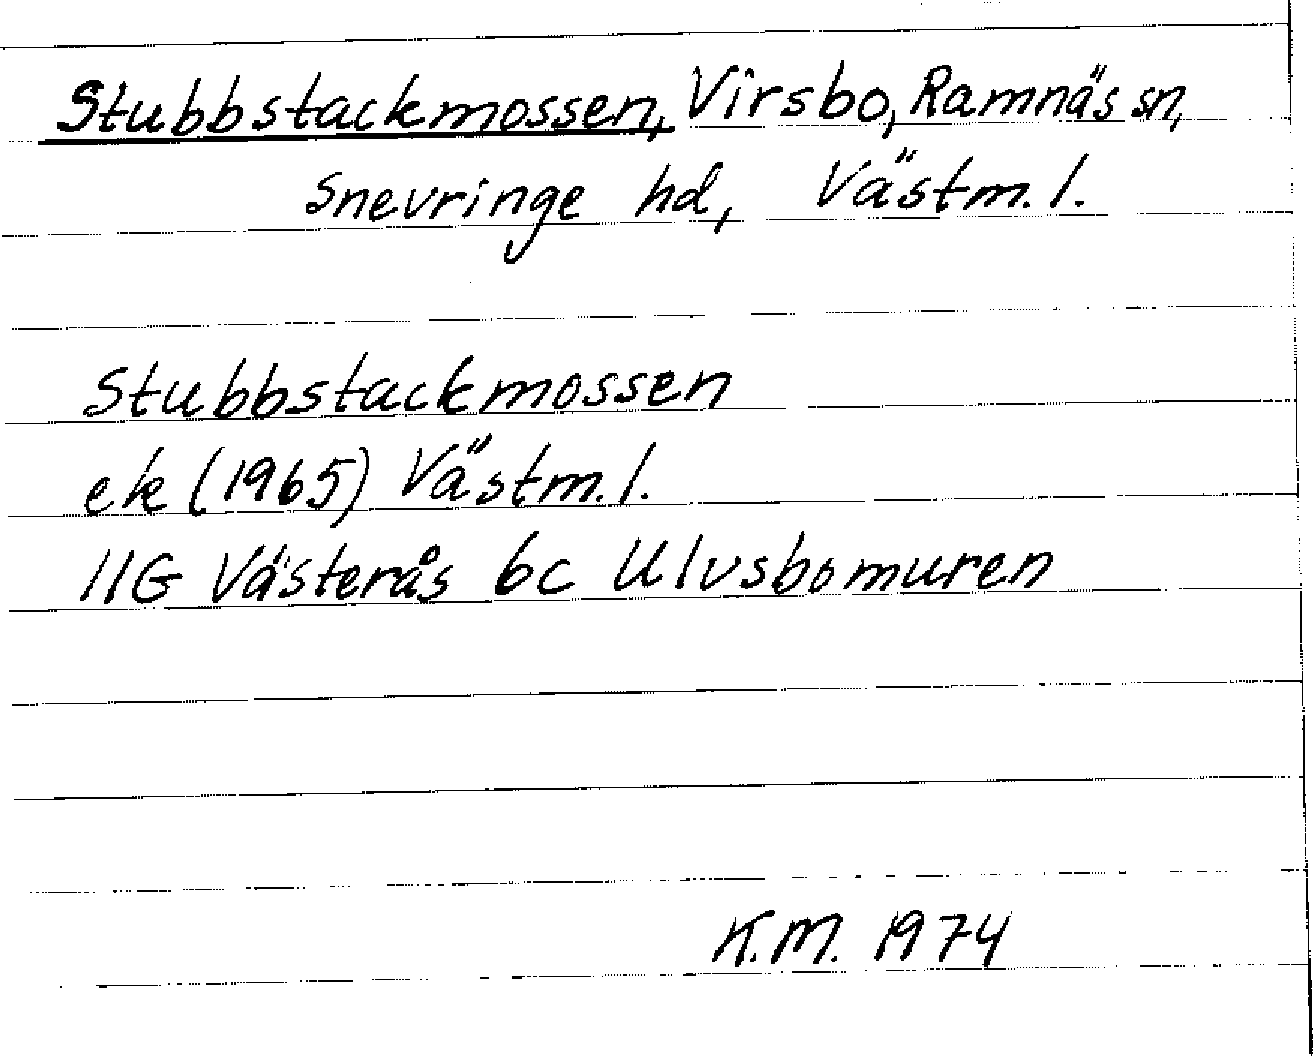 Stubbstackmossen, Virsbo, Ramnäs sn,
Snevringe hd, Västm. l.
Stubbstackmossen
ek (1965) Västm. l.
11G Västerås 6c Ulvsbomuren
K.M. 1974